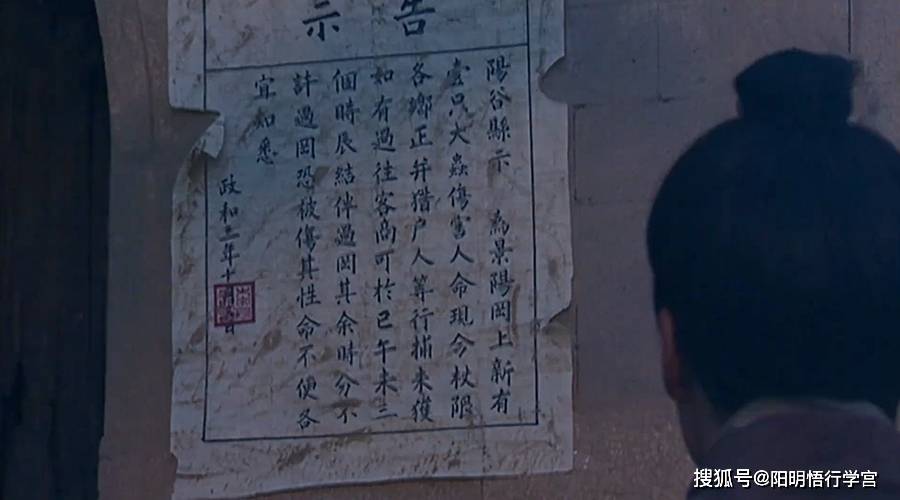 告示
陽谷縣示 為景陽岡上新有
壹只大蟲傷害人命現今杖限
各鄉正并猎户人等行捕未獲
如有過往客商可於巳午未三
個時辰結伴過岡其余时分不
許過岡恐被傷其性命不便各
宜知悉
政和三年十月日
搜狐号@阳明悟行学宫